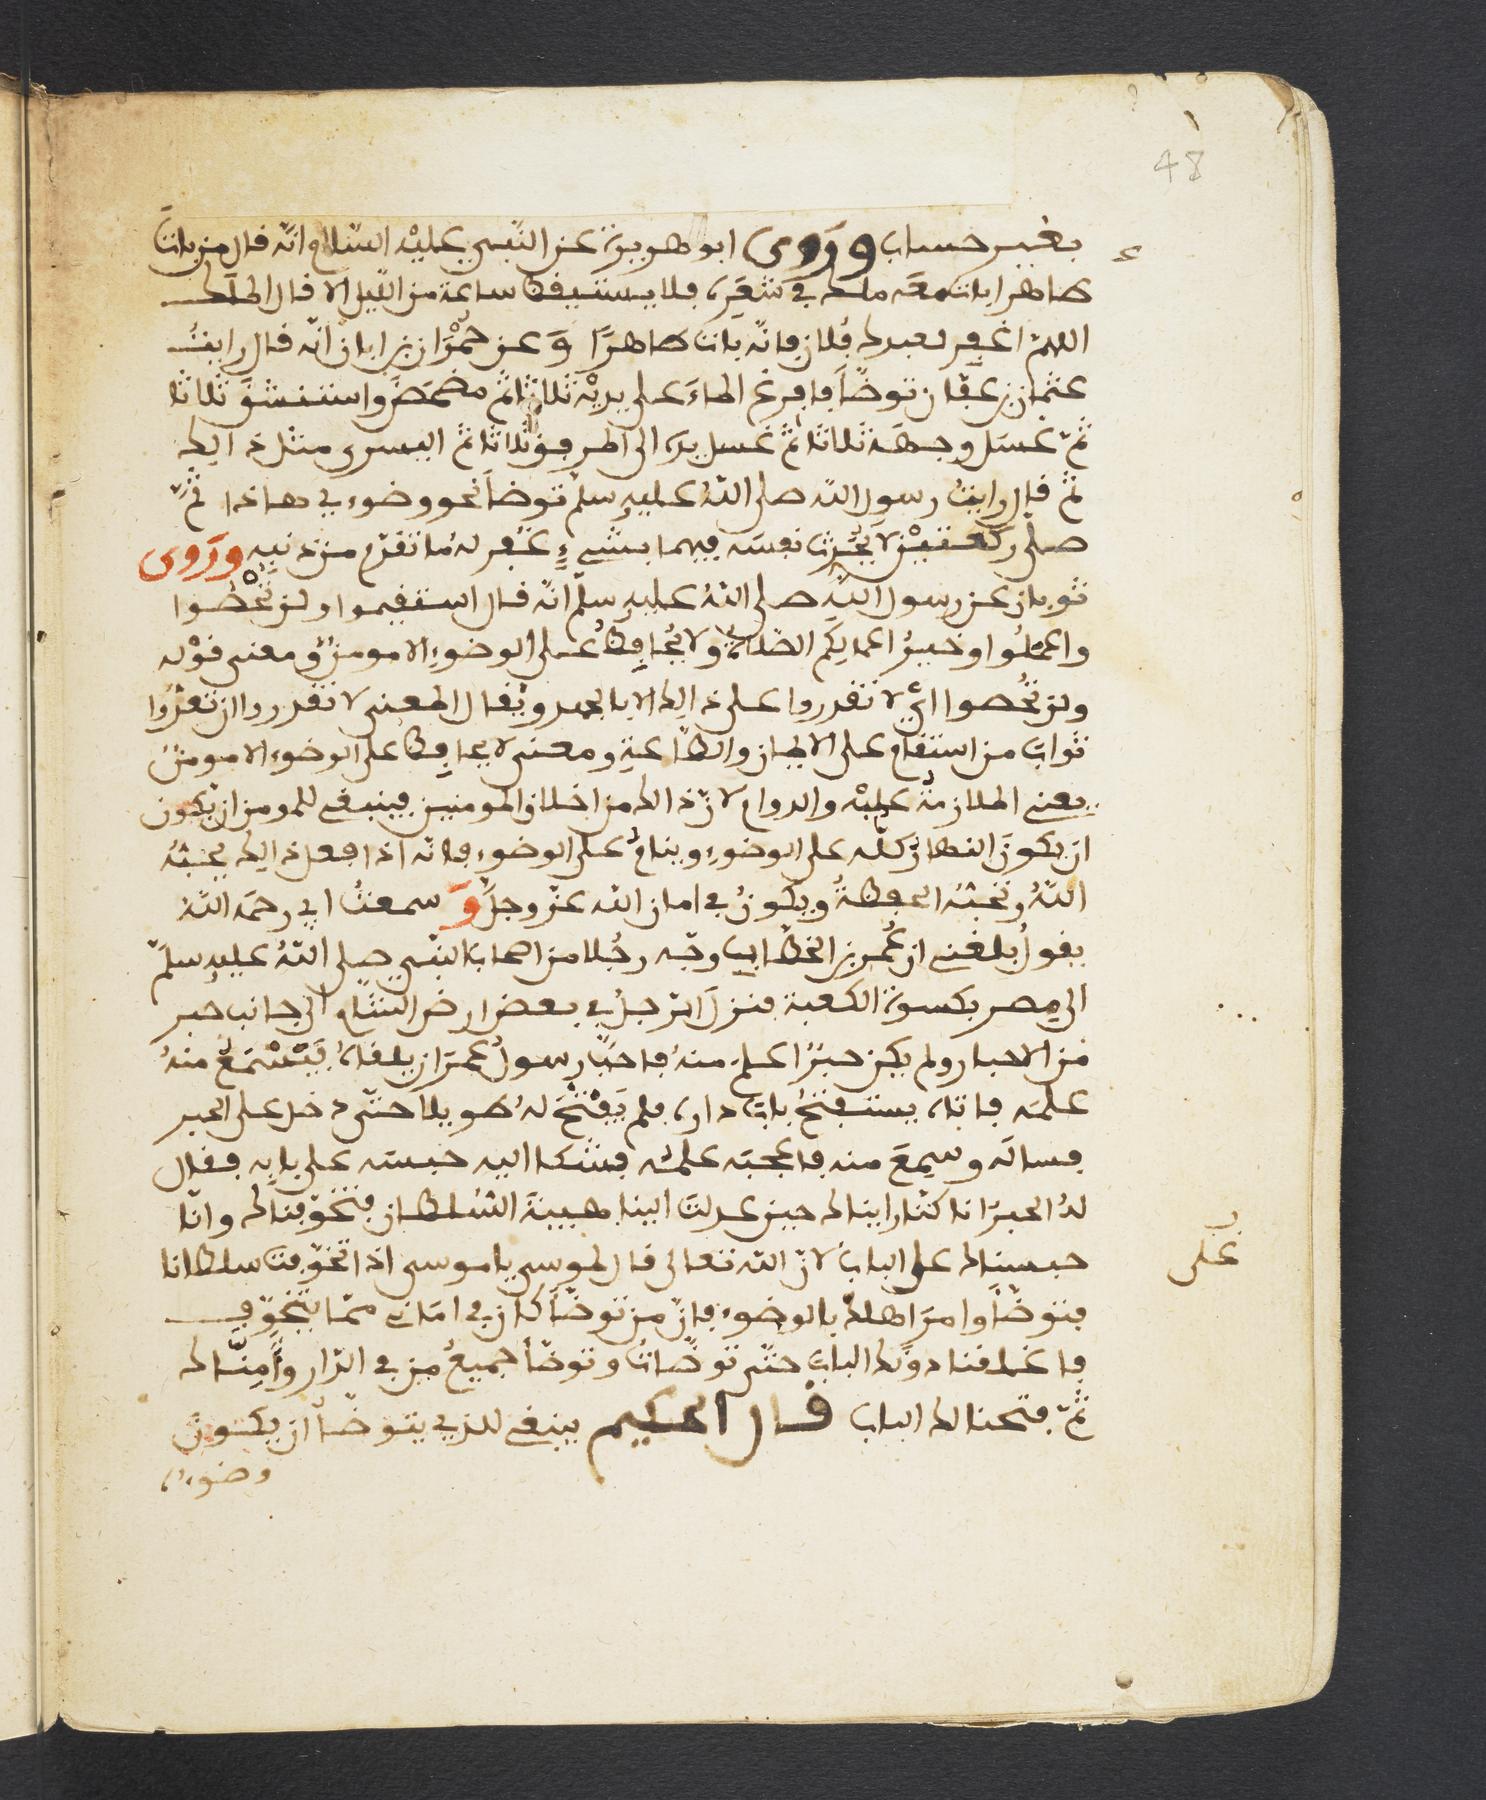 48
بغير حساب وروى ابو هريرة عن النّبي عليه السّلام انّه قال من بات
طاهرا بات معه ملك في شعره فلا يستيقظ ساعة من اللّيل الا قال الملك
اللهمّ اغفر لعبدك فلان فانّه بات طاهرًا وَعن حمْران بن ابان انّه قال رايتُ
عثمان بن عفّان توضّأ فافرغ الماءَ على يديْه ثلاثا ثمّ مضمَضَ واستنشقَ ثلاثا
ثمّ غسَل وجهَه ثلاثا ثمّ غسل يده الى المرفق ثلاثا ثمّ اليسرى مثل ذالك
ثمّ قال رايتُ رسول اللّه صلى اللهُ عليه وسلّم توضأ نحو وضوءي هاذا ثمّ
صلّى ركعتيْن لا يُحَدِّث نفسَه فيهما بشيءٍ غُفِر لهُ ما تقدّم من ذنبِه وَرَوى
ثوبان عن رسول اللهِ صلى اللهُ عليه وسلّم انّه قال استقيموا ولن تُحْصُوا
واعْلمُوا وخيرُ اعمالِكم الصّلاةُ ولا يُحافِظُ على الوضوءِ الا مومنٌ ومعنى قوْله
ولن تُحصوا ايْ لا تقدروا على ذالك الا بالجهد ويُقال المعنى لا تقدروا ان تعُدّوا
ثوابَ من استقام على الايمان والطّاعةِ ومعنى لا يحافِظ على الوضوء الا مومنٌ
يعني الملازمةُ عليْه والدوام لانّ ذالك من اخلاق المومنين فينبغي للمومن ان يكون
ان يكونَ النهارَ كلّه على الوضوءِ وينامُ على الوضوءِ فانّه اذا فعل ذالك يحبّهُ
اللّهُ وتحبّهُ الحفظةُ ويكونُ في امان اللّه عزّ وجلّ وَ سمعتُ ابي رحمَه اللّهُ
يقولُ بلغني ان عُمر بن الخطّاب وجّه رجُلا من اصحاب النّبي صلى اللّهُ عليه وسلّم
الى مِصر بكسوة الكعبة فنزلَ الرّجلُ في بعض ارض الشّام الى جانب حبر
من الاحبار ولم يكن حبرٌ اعلمَ منهُ فاحبَّ رسولُ عمرَ ان يلقاهُ يَسْتَمِعُ منهُ
علمَه فاتاه يستفتحُ بابَ داره فلم يَفْتَحْ لهُ طويلاً حتّى دخل على الحبر
فسالَه وسمِعَ منه فاعجبَه علمُه فشكا اليه حبسَه على بابِه فقال
لهُ الحبرُ انا كنّا رايناك حين عدلتَ الينا هيبةَ السّلطان فتخوّفناك وانّا
حبسناك على الباب لانّ اللّه تعالى قال لموسى يا موسى اذا تخوّفت سلطانا
فتوضّأ وامرَ اهلكَ بالوضوء فانّ من توضّأ كان في امانٍ ممّا يتخوّف
فاغلقنا دونَك البابَ حتّى توضّاتُ وتوضّأ جميعُ من في الدّار وأَمِنّاك
ثمّ فتحنا لك الباب قال الحكيم ينبغي للذي يتوضّأ ان يكونَ
وضوءه
على